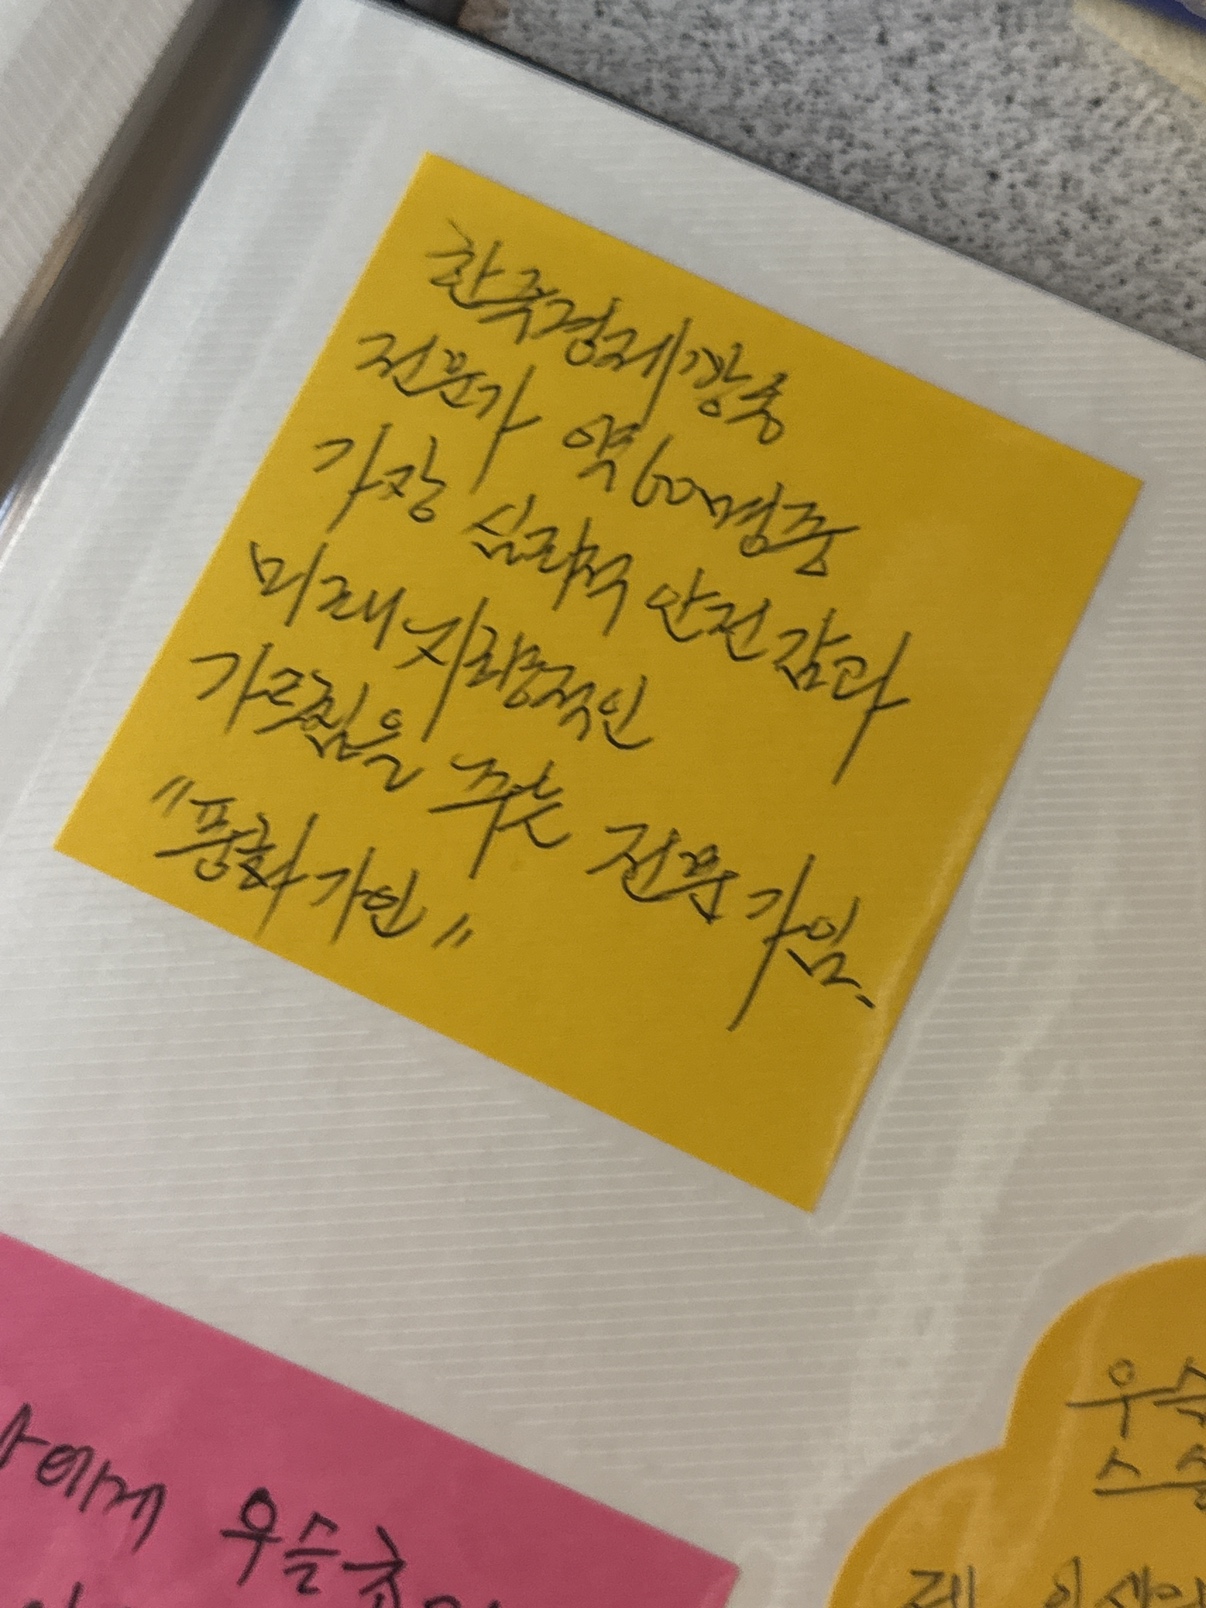 한국경제 방송
전문가 약 60여명중
가장 심리적 안전감과
미래지향적인
가르침을 주는 전문가임.
"평화가인"
에게 우슬초
우슬
스